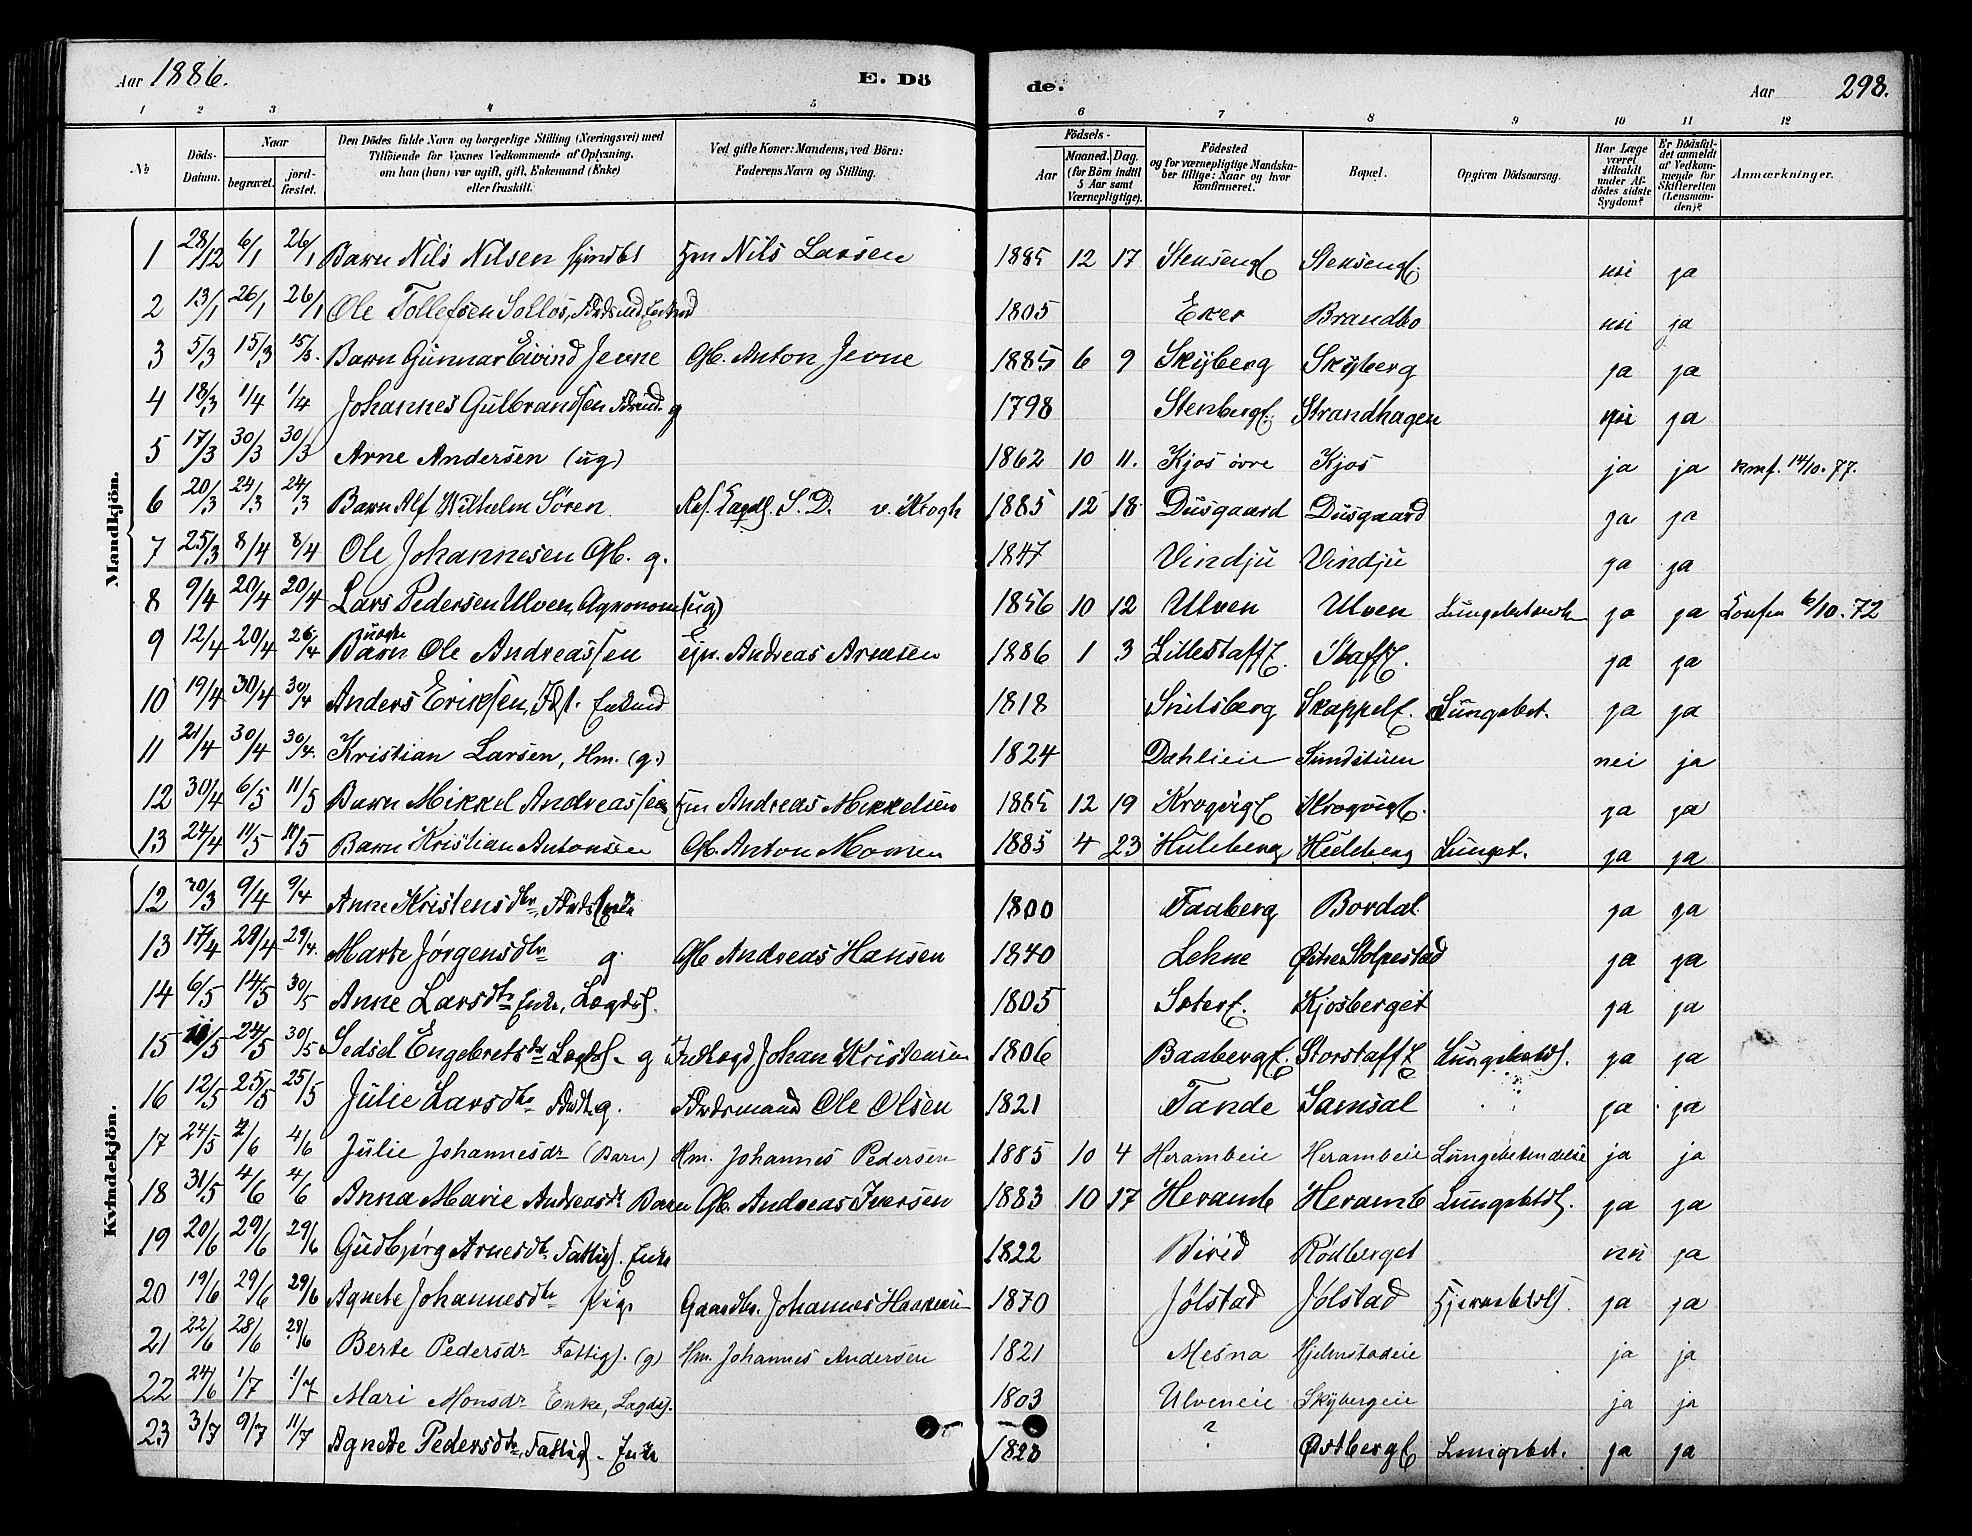 Aar 1886. E. Döde. Aar 298.
1 2 3 4 5 6 7 8 9 10 11 12
№
Döds-Datum.
Naar begravet. jordfæstet.
Den Dödes fulde Navn og borgerlige Stilling (Næringsvei) med Tilföiende for Voxnes Vedkommende af Oplysning, om han (hun) var ugift, gift, Enkemand (Enke) eller fraskilt.
Ved gifte Koner: Mandens, ved Börn: Faderens Navn og Stilling.
Födsels-
Aar Maaned. Dag. (for Börn indtil 5 Aar samt Værnepligtige).
Födested og for værnepligtige Mandskaber tillige: Naar og hvor konfirmeret.
Bopæl.
Opgiven Dödsaarsag.
Har Læge været tilkaldt under Afdödes sidste Sygdom?
Er Dödsfaldet anmeldt af Vedkommende for Skifteretten (Lensmanden)?
Anmærkninger.
Mandkjön.
1 28/12 6/1 26/1 Barn Nils Nilsen Nils Larsen 1885 12 17 ja
2 13/1 26/1 26/1 Ole Tollefsen 1805 Eker Brandbo ja
3 5/3 15/3 15/3 Barn Gunnar Eivind Jevne Gb. Anton Jevne 1885 6 9 Skyberg Skyberg ja ja
4 18/3 1/4 1/4 Johannes Gulbrandsen g 1798 Stenberg Strandhagen nei ja
5 17/3 30/3 30/3 Arne Andersen (ug) 1862 10 11. Kjos övre Kjos ja ja kmf. 14/10. 77.
6 20/3 24/3 24/3 Barn Alf Wilhelm Sören S. D. v. Krogh 1885 12 18 Dusgaard Dusgaard ja ja
7 25/3 8/4 8/4 Ole Johannesen Gb. g. 1847 Vindju Vindju ja ja
8 9/4 20/4 20/4 Lars Pedersen Ulven, Agronom (ug) 1856 10 12 Ulven Ulven ja ja 6/10. 72
9 12/4 20/4 26/4 uægte Barn Ole Andreassen Andreas Arnesen 1886 1 3 Lillestaff Staff ja ja
10 19/4 30/4 30/4 Anders Eriksen, 1818 Snilsberg Lungebet. ja ja
11 21/4 30/4 30/4. Kristian Larsen, Hm. (g.) 1824 Dahleie nei ja
12 30/4 6/5 11/5 Barn Mikkel Andreassen Andreas Mikkelsen 1885 12 19 ja ja
13 24/4 11/5 11/5 Barn Kristian Antonsen Gb. Anton Momen 1885 4 23 Huleberg Huleberg Lunget. ja ja
Kvindekjön.
12 30/3 9/4 9/4 Anne Kristensdtr, Enke 1800 Faaberg Bordal ja ja
13 17/4 29/4 29/4. Marte Jørgensdtr g. Gb Andreas Hansen 1840 Lehne Østre Stolpestad ja ja
14 6/5 14/5 30/5 Anne Larsdtr Enke, Lægdsl. 1805 Kjosberget ja ja
15 24/5 30/5 Sedsel Engebretsdtr Lægdsl. g Indlagd, Johan Kristensen 1806 Storstaff ja ja
16 12/5 25/5 25/5 Julie Larsdtr g. Fördsmand Ole Olsen 1821 Tande Samsal ja ja
17 24/5 4/6 Julie Johannesdr (Barn) Hm. Johannes Pedersen 1885 10 4 Herambeie Herambeie Lungebetændelse ja ja
18 31/5 4/6 4/6 Anna Marie Andreasdr Barn Gb. Andreas Iversen 1883 10 17 Heramb Heramb ja ja
19 20/6 29/6 29/6 Gudbjørg Arnesdtr Fattigl. Enke 1822 Birid Rødberget nei ja
20 19/6 29/6 29/6 Agnete Johannesdtr Pige Gaardbr. Johannes Haakensen 1870 Jølstad Jølstad ja ja
21 22/6 28/6 29/6 Berte Pedersdr Fattigl. (g) Hm. Johannes Andersen 1821 Mesna Hjelmstadeie ja ja
22 24/6 1/7 1/7 Mari Monsdr Enke, Lægdsl. 1803 Ulveneie Skybergeie ja ja
23 3/7 9/7 11/7 Agnete Pedersdtr, Fattigl. Enke ? Østberg Lungebet. ja ja